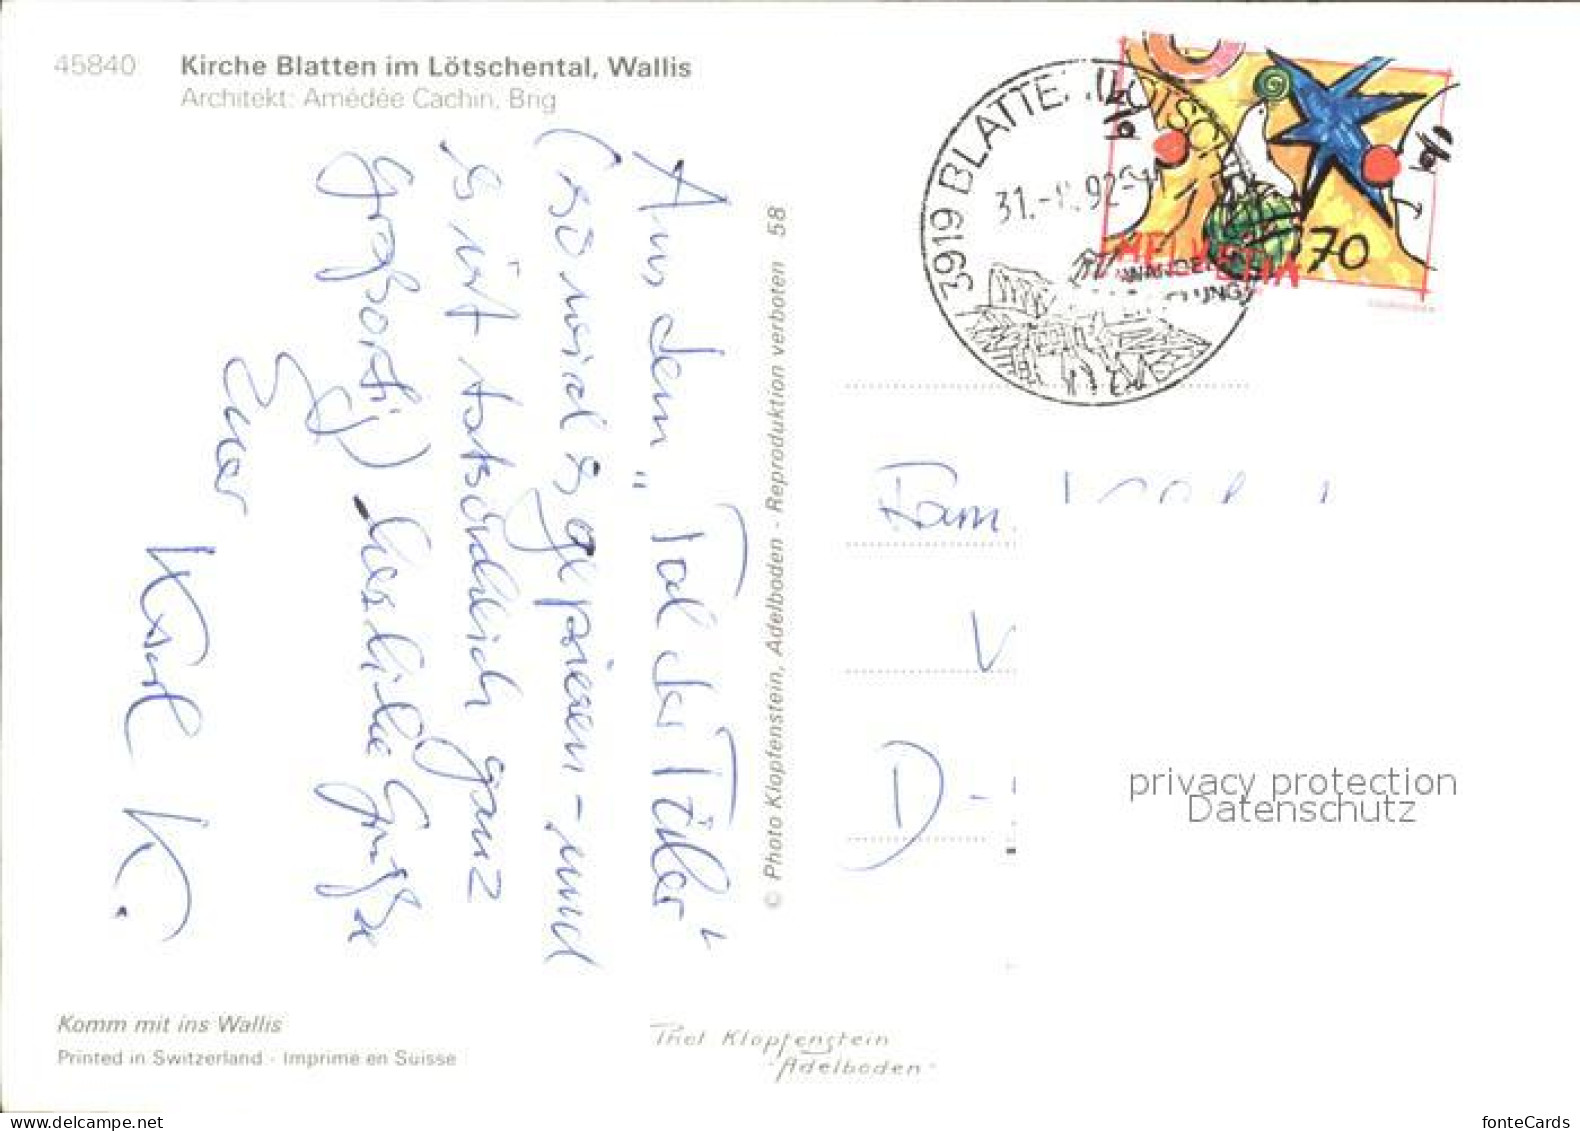 45840 Kirche Blatten im Lötschental, Wallis
Architekt: Amédée Cachin, Brig
Aus dem „Tal der Täler“
(so wird es gepriesen - und
es ist tatsächlich ganz
großartig) herzliche Grüße
Euer
Karl K.
© Photo Klopfenstein, Adelboden - Reproduktion verboten 58
3919 BLATTEN
31. 92
HELVETIA
70
Fam.
D-
privacy protection
Datenschutz
Komm mit ins Wallis
Printed in Switzerland - Imprimé en Suisse
Klopfenstein
- Adelboden -
www.delcampe.net
fonteCards